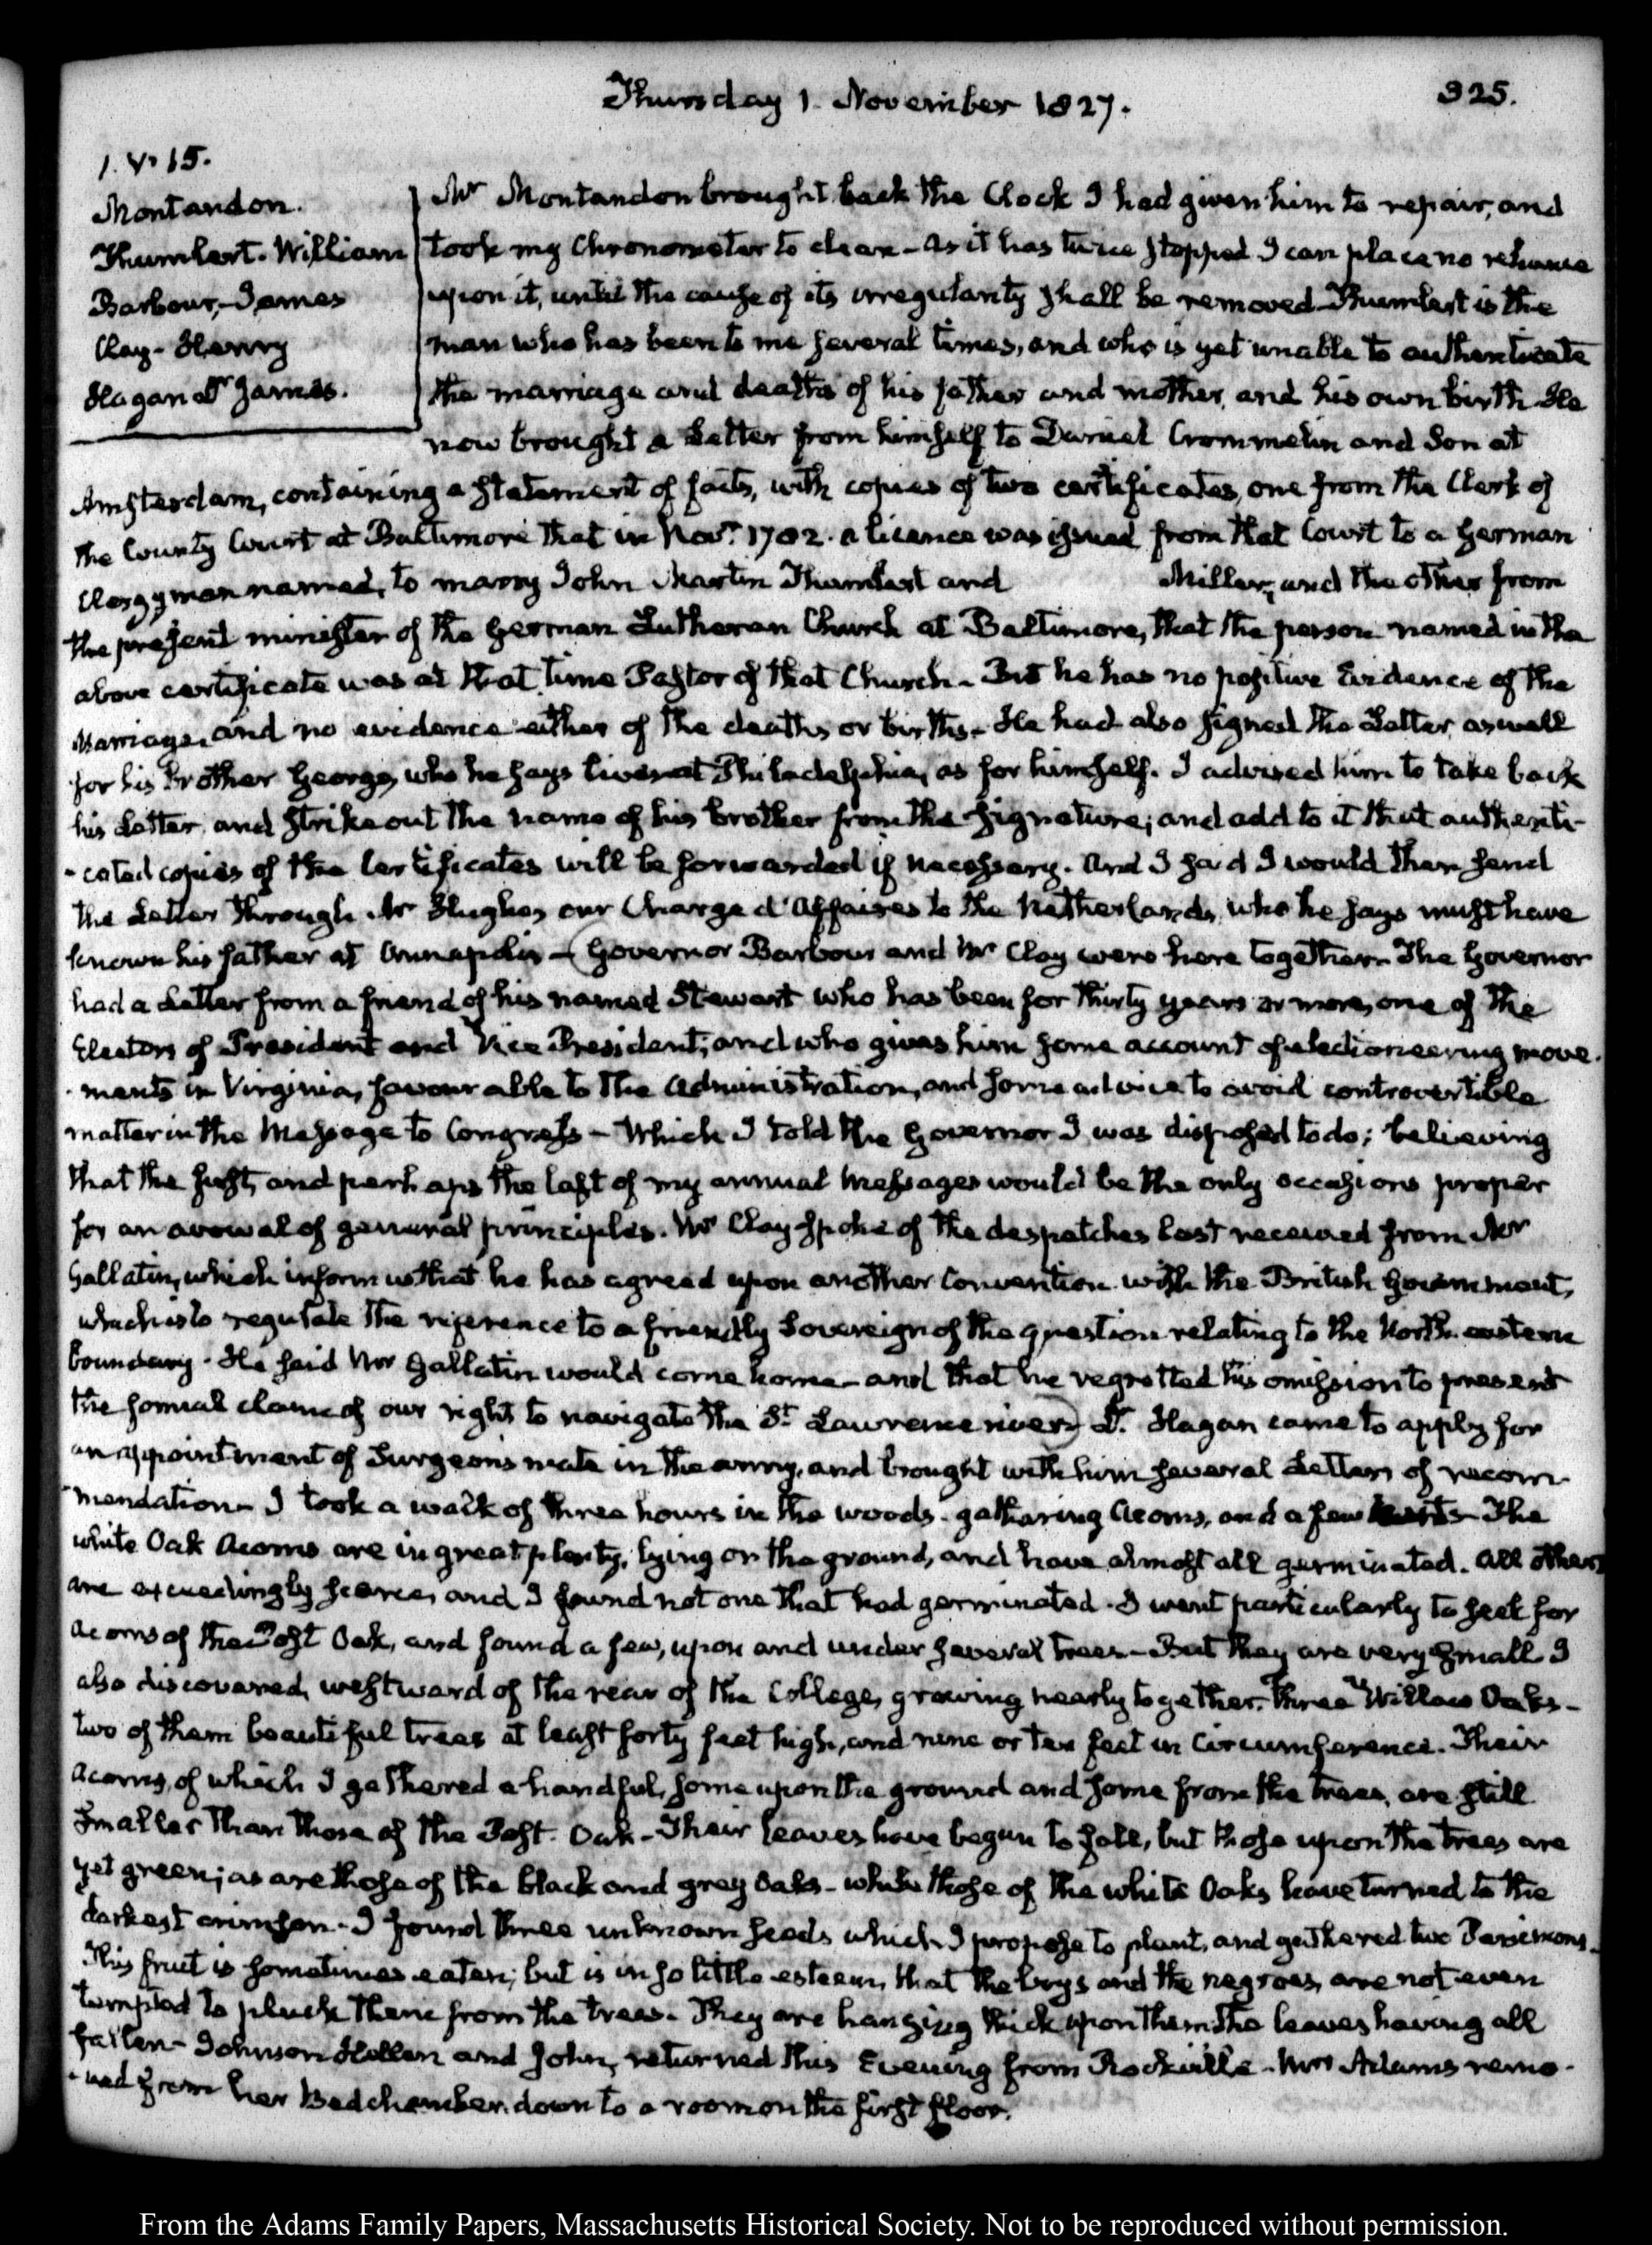 Thursday 1. November 1827.
325.
1. V. 15.
Montandon.
Thumlert. William
Barbour, James
Clay- Henry
Hagan Dr James.
Mr Montandon brought back the Clock I had given him to repair, and
took my Chronometer to clean - As it has twice stopped I can place no reliance
upon it, until the cause of its irregularity shall be removed - Thumlert is the
man who has been to me several times, and who is yet unable to authenticate
the marriage and deaths of his father and mother, and his own birth. He
now brought a Letter from himself to Daniel Crommelin and Son at
Amsterdam, containing a statement of facts, with copies of two certificates, one from the Clerk of
the County Court at Baltimore that in Novr. 1782. a licence was issued from that Court to a German
Clergyman named, to marry John Martin Thumlert and Miller, and the other from
the present minister of the German Lutheran Church at Baltimore, that the person named in the
above certificate was at that time Pastor of that Church - But he has no positive Evidence of the
Marriage, and no evidence either of the deaths or births - He had also signed the Letter, as well
for his Brother George, who he says lives at Philadelphia, as for himself. I advised him to take back
his Letter, and strike out the name of his brother from the signature; and add to it that authenti-
-cated copies of the Certificates will be forwarded if necessary. And I said I would then send
the Letter through Mr Hughes our Chargé d'Affaires to the Netherlands, who he says must have
known his father at Annapolis - Governor Barbour and Mr Clay were here together - The Governor
had a Letter from a friend of his named Stewart who has been for thirty years or more, one of the
Electors of President and Vice President; and who gives him some account of electioneering move-
-ments in Virginia, favourable to the Administration, and some advice to avoid controvertible
matter in the Message to Congress - Which I told the Governor I was disposed to do; believing
that the first, and perhaps the last of my annual Messages would be the only occasions proper
for an avowal of general principles. Mr Clay spoke of the despatches last received from Mr
Gallatin, which inform us that he has agreed upon another Convention with the British Government,
which is to regulate the reference to a friendly Sovereign of the question relating to the North eastern
boundary - He said Mr Gallatin would come home - and that he regretted his omission to present
the formal claim of our right to navigate the St. Lawrence river) Dr. Hagan came to apply for
an appointment of Surgeon's mate in the army, and brought with him several Letters of recom-
-mendation - I took a walk of three hours in the woods - gathering Acorns, and a few - The
white Oak Acorns are in great plenty, lying on the ground, and have almost all germinated. All others
are exceedingly scarce, and I found not one that had germinated. I went particularly to seek for
acorns of the Post Oak, and found a few, upon and under several trees - But they are very small. I
also discovered, westward of the rear of the College, growing nearly together three Willow Oaks -
two of them beautiful trees at least forty feet high, and nine or ten feet in circumference. Their
acorns, of which I gathered a handful, some upon the ground and some from the trees, are still
smaller than those of the Post. Oak - Their leaves have begun to fall, but those upon the trees are
yet green; as are those of the black and grey Oaks - while those of the white Oaks have turned to the
darkest crimson - I found three unknown seeds which I propose to plant, and gathered two Persimons.
This fruit is sometimes eaten; but is in so little esteem, that the boys and the negroes, are not even
tempted to pluck them from the trees. They are hanging thick upon them the leaves having all
fallen - Johnson Hellen and John, returned this Evening from Rockville - Mrs Adams remo-
-ved from her Bedchamber down to a room on the first floor.
From the Adams Family Papers, Massachusetts Historical Society. Not to be reproduced without permission.